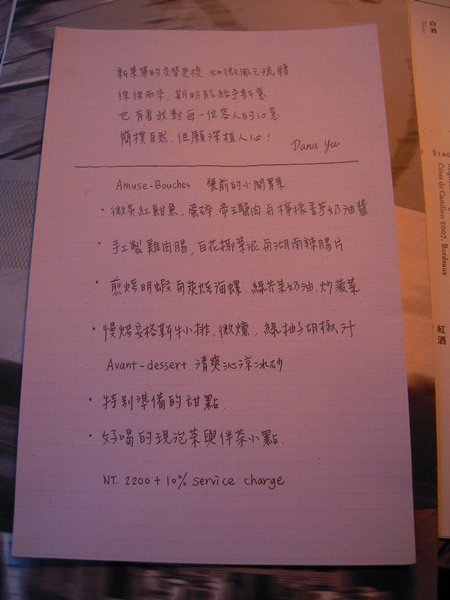 新菜單的交替更換, 如微風之流轉
徐徐而來, 期盼能給予新意
也有著我對每一位客人的心意
簡樸自然, 但願深植人心!
Dana Yu
Amuse-Bouches 餐前的小開胃菜
• 微炙紅魽魚, 蛋碎 帝王蟹肉 與檸檬香芋奶油醬
• 手工製雞肉腸, 白花椰菜泥與湖南辣腸片
• 煎烤明蝦與炭烤海螺, 綠芥茉奶油, 炒菠菜
• 慢烤安格斯牛小排, 微燻, 綠柚子胡椒汁
Avant-dessert 清爽沁涼冰砂
• 特別準備的甜點.
• 好喝的現泡茶與伴茶小點.
NT. 2200 + 10% service charge
白酒
Côtes de Castillon 2007, Bordeaux
紅酒